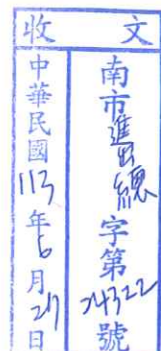 收文
南市進總字第24322號
中華民國113年6月24日